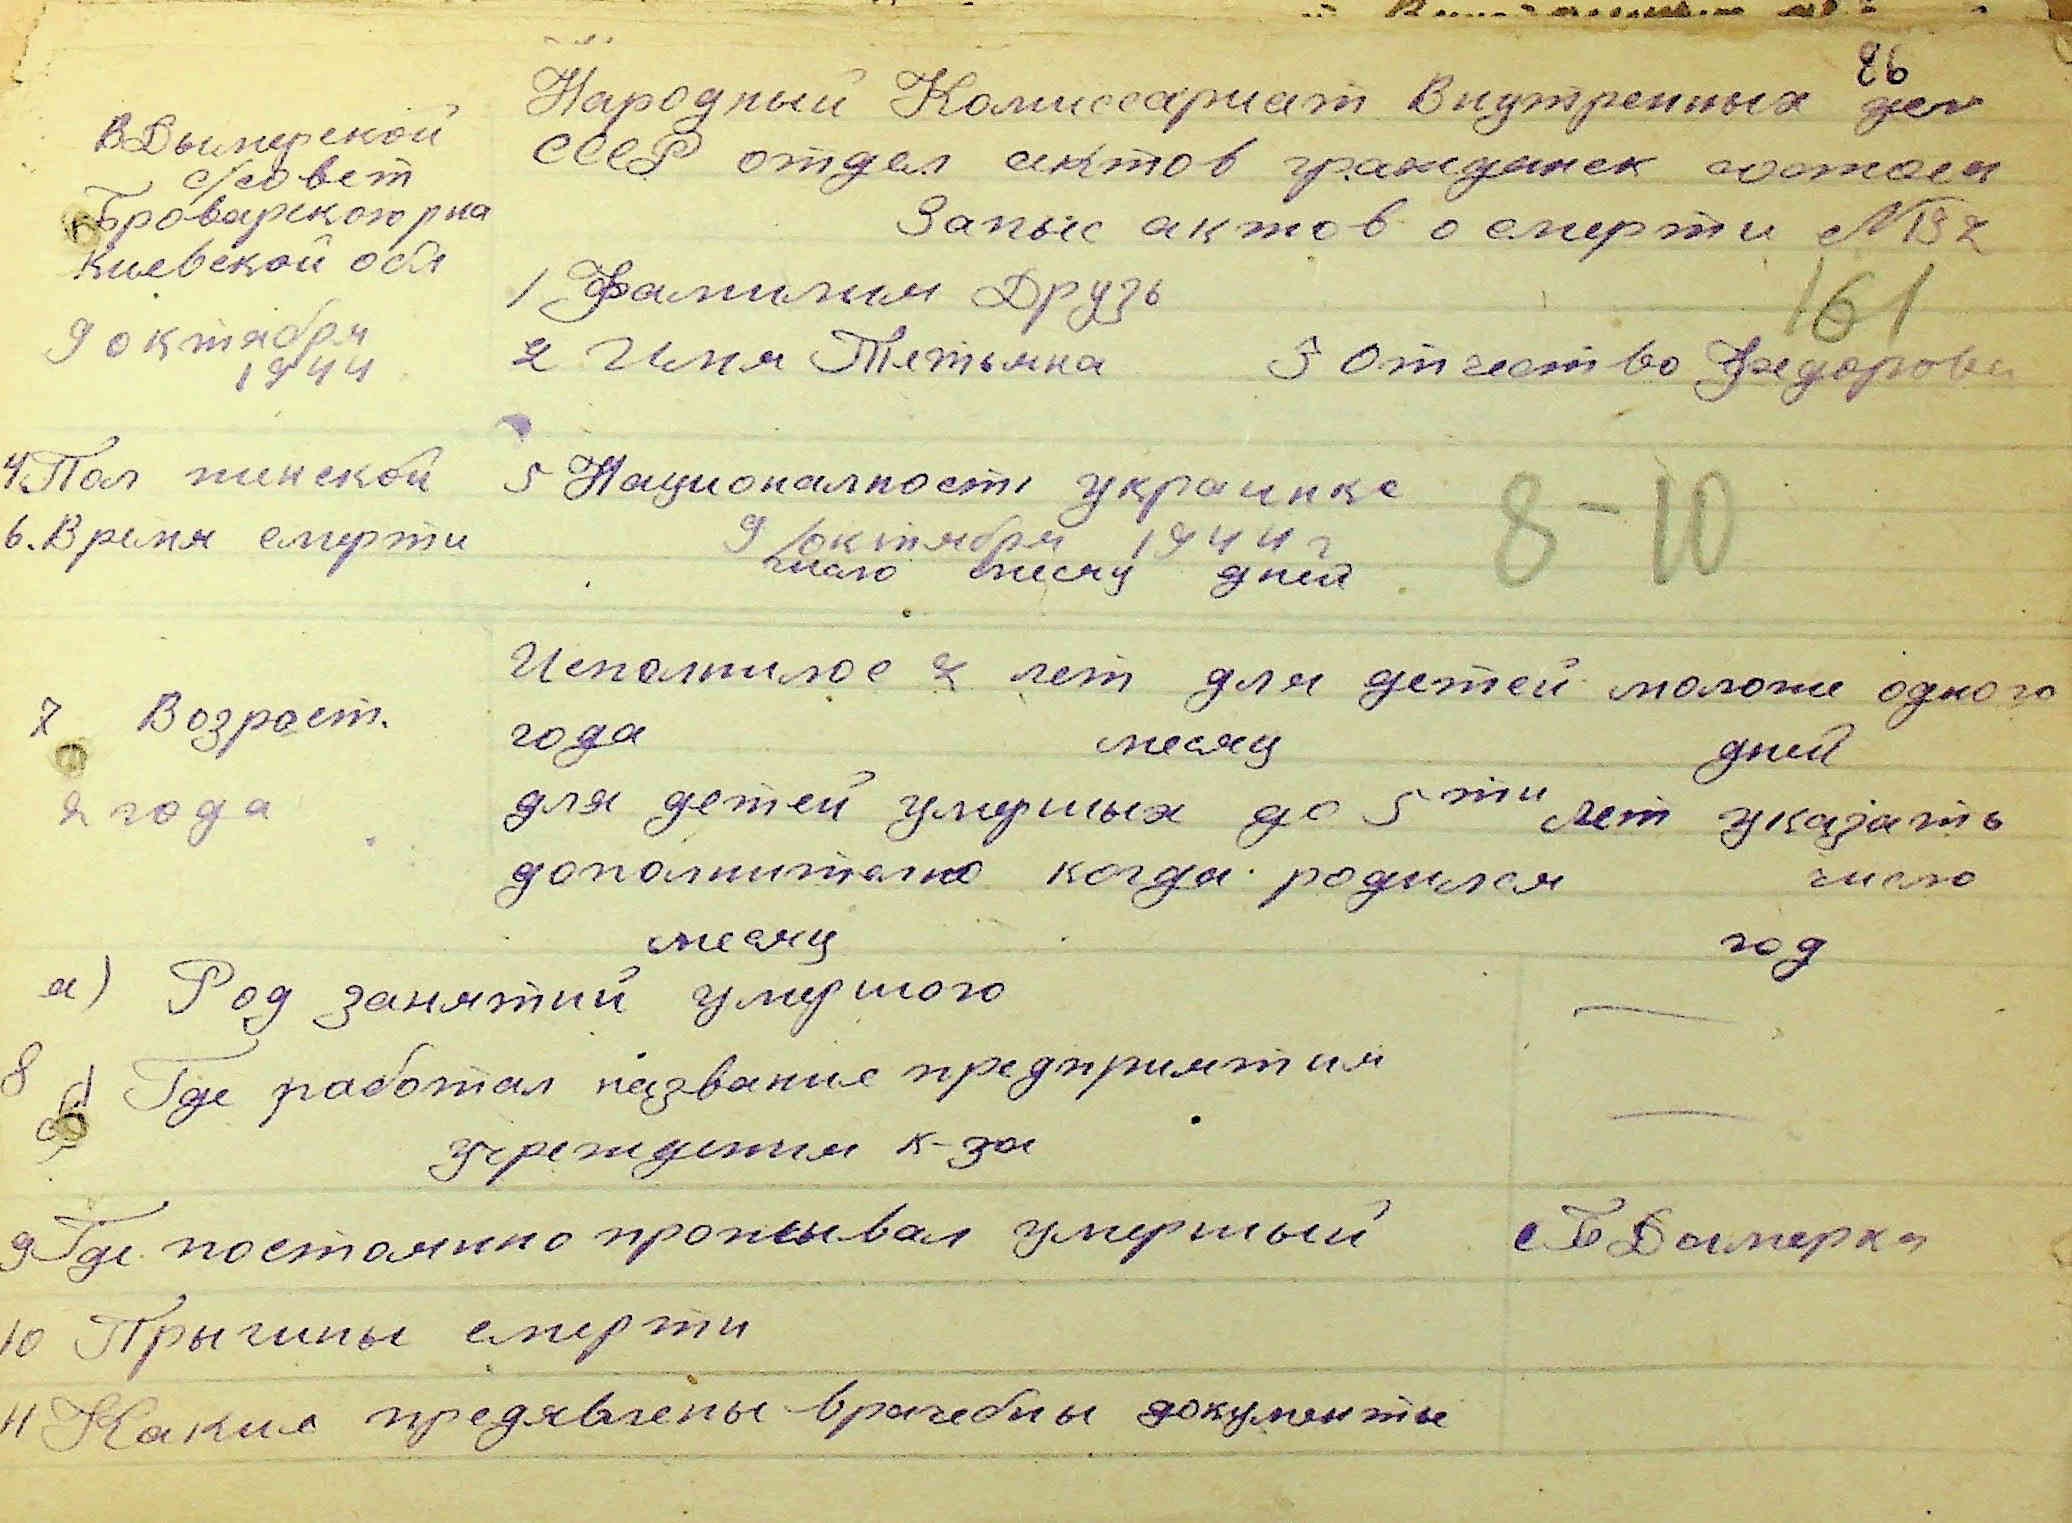 26
Народный Комиссариат Внутренных дел
СССР отдел актов гражданск состоян
Запыс актов о смерти №32
161
ВДымерской
с/совет
Броварского рна
Киевской обл
9 октября
1944
1 Фамилия Друзь
2 Имя Тетьяна 3 Отчество Федоровн
4 Пол женской 5 Националность украинке
8-10
6. Время смерти 9 октября 1944 г
число месяц дней
7 Возраст.
2 года
Исполнилос 2 лет для детей моложе одного
года месяц дней
для детей умершых до 5ти лет указать
дополнително когда родился число
месяц год
8 а) Род занятий умершого —
Где работал название предприятия
учреждения к-за —
9 Где постоянно прожывал умершый с Б Дымерка
10 Прычины смерти
11 Какие предявлены врачебны документы